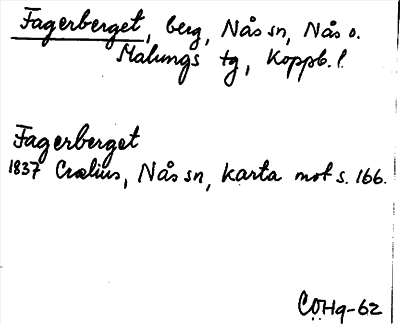 Fagerberget, berg, Nås sn, Nås o.
Malungs tg, Koppb. l.
Fagerberget
1837 Crælius, Nås sn, karta mot s. 166.
CÖHg-62